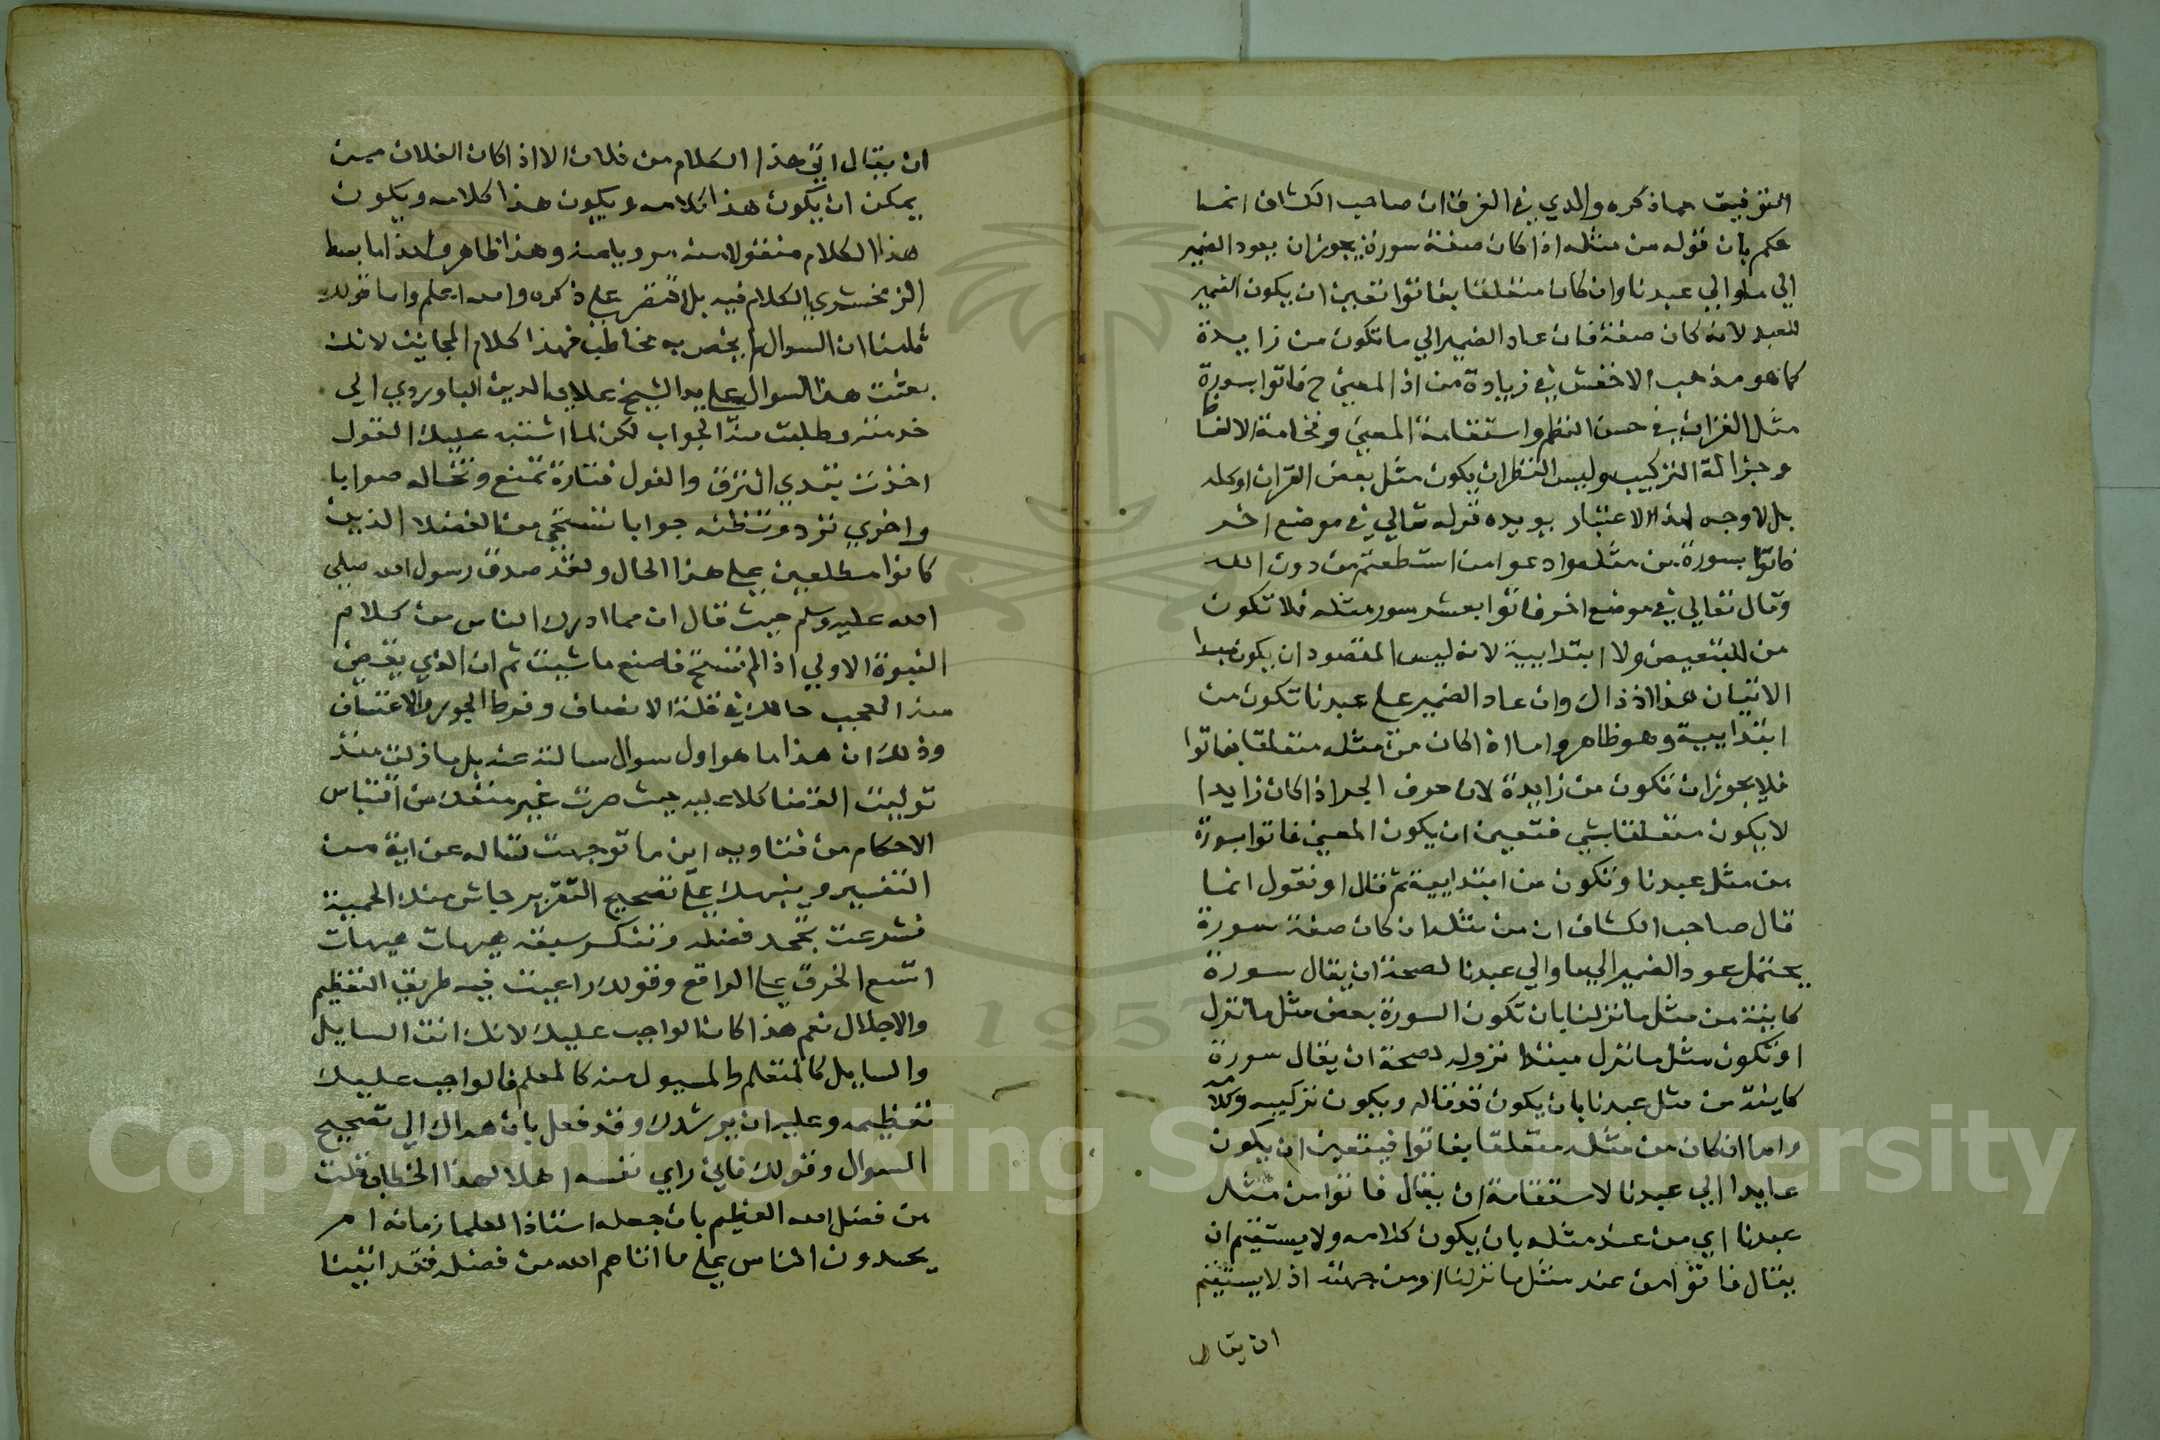 التوفيق مما ذكره والدي في الفرق ان صاحب الكشاف انما
حكم بان قوله من مثله اذا كان صفة سورة يجوز ان يعود الضمير
الي ما والي عبدنا وان كان متعلقا بفاتوا تعين ان يكون الضمير
للعبد لانه كان صفة فان عاد الضمير الي ما تكون من زايدة
كما هو مذهب الاخفش في زيادة من اذ المعني ح فاتوا بسورة
مثل القران في حسن النظم واستقامة المعني وفخامة الالفاظ
وجزالة التركيب وليس النظر ان يكون مثل بعض القران او كله
بل لا وجه لهذا الاعتبار يويده قوله تعالي في موضع اخر
فاتوا بسورة من مثله وادعوا من استطعتم من دون الله
وقال تعالي في موضع اخر فاتوا بعشر سور مثله فلا تكون
من للتبعيض ولا ابتدايية لانه ليس المقصود ان يكون مبدا
الاتيان هذا اذ ذاك وان عاد الضمير علي عبدنا تكون من
ابتدايية وهو ظاهر واما اذا كان من مثله متعلقا بفاتوا
فلا يجوز ان تكون من زايدة لان حرف الجر اذا كان زايدا
لا يكون متعلقا بشي فتعين ان يكون المعني فاتوا بسورة
من مثل عبدنا وتكون من ابتدايية ثم قال او نقول انما
قال صاحب الكشاف ان من مثله ان كان صفة سورة
يحتمل عود الضمير الي ما والي عبدنا لصحة ان يقال سورة
كاينة من مثل ما نزلنا بان تكون السورة بعض مثل ما نزل
او تكون مثل ما نزل مبتدا نزوله لصحة ان يقال سورة
كاينة من مثل عبدنا بان يكون قد قاله ويكون تركيبه وكلامه
واما ان كان من مثله متعلقا بفاتوا فيتعين ان يكون
عايدا الي عبدنا لاستقامة ان يقال فاتوا من مثل
عبدنا اي من عند مثله بان يكون كلامه ولا يستقيم ان
يقال فاتوا من عند مثل ما نزلنا او من جهته اذ لا يستقيم
ان يقال
ان يقال اتي هذا الكلام من فلان الا اذا كان الفلان ممن
يمكن ان يكون هذا كلامه ويكون هذا كلامه ويكون
هذا الكلام منقولا منه مرويا منه وهذا ظاهر ولهذا ما بسط
الزمخشري الكلام فيه بل اقتصر علي ذكره والله اعلم واما قولك
سلمنا ان السوال لم يختص به مخاطب فهذا كلام المجانين لانك
بعثت هذا السوال علي يد الشيخ علاي الدين الباوردي الي
خدمته وطلبت منه الجواب لكن لما اشتبه عليك القول
اخذت تبدي النزق والغول فتارة تمنع وتخاله صوابا
واخري ترد وتظنه جوابا تستحي من الفضلا الذين
كانوا مطلعين علي هذا الحال ولقد صدق رسول الله صلي
الله عليه وسلم حيث قال ان مما ادرك الناس من كلام
النبوة الاولي اذا لم تستح فاصنع ما شيت ثم ان الذي يقضي
منه العجب حالك في قلة الانصاف وفرط الجور والاعتساف
وذلك ان هذا ما هو اول سوال سالته عنه بل ما زلت منذ
توليت القضا كلا عليه حيث صرت غير منفك من اقتباس
الاحكام من فتاويه اين ما توجهت تساله عن اية من
التفسير وينبهك علي تصحيح التقرير جاش منك الحمية
فشرعت تجحد فضله وتنكر سبقه هيهات هيهات
اتسع الخرق علي الراقع وقولك راعيت فيه طريق التعظيم
والاجلال نعم هذا كان الواجب عليك لانك انت السايل
والسايل كالمتعلم والمسيول منه كالمعلم فالواجب عليك
تعظيمه وعليه ان يرشدك وقد فعل بان هداك الي تصحيح
السوال وقولك فاين راي نفسه اهلا لهذا الخطاب قلت
من فضل الله العظيم بان جعله استاذ العلما زمانه ام
يحسدون الناس علي ما اتاهم الله من فضله فقد اتينا
Copyright © King Saud University
1957